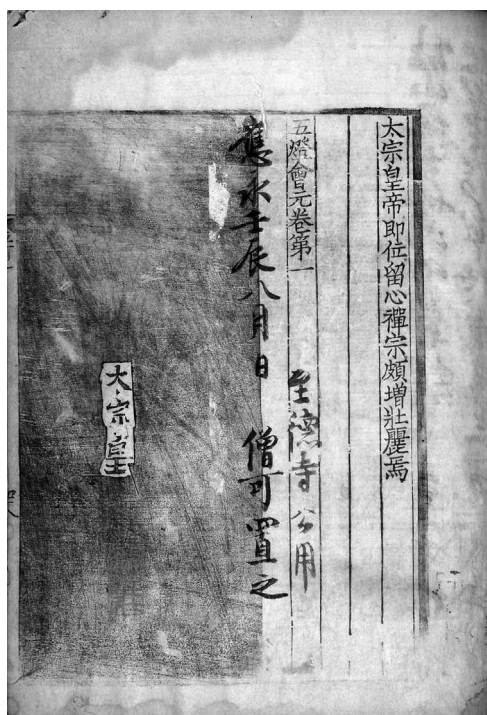 太宗皇帝即位留心禪宗頗增壯麗焉
五燈會元卷第一
至德寺公用
應永壬辰八月日 僧可置之
大宗皇